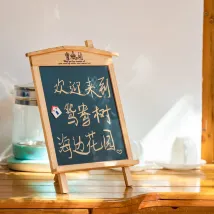 欢迎来到
鸳鸯树
海边花园